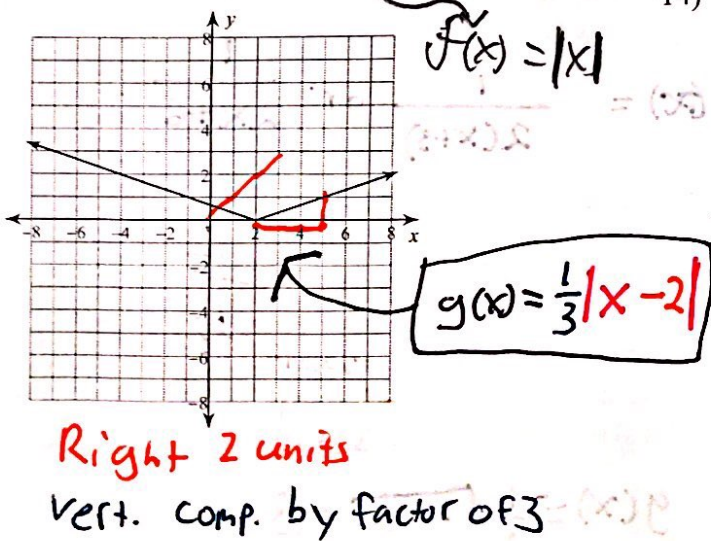 14)
f(x) = |x|
y
8
6
4
2
-8 -6 -4 -2 2 4 6 8 x
-2
-4
-6
-8
g(x) = 1/3|x - 2|
Right 2 units
Vert. comp. by factor of 3